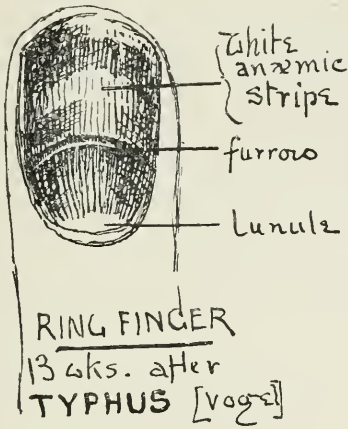 White
anæmic
stripe
furrow
Lunule
RING FINGER
13 wks. after
TYPHUS [Vogel]